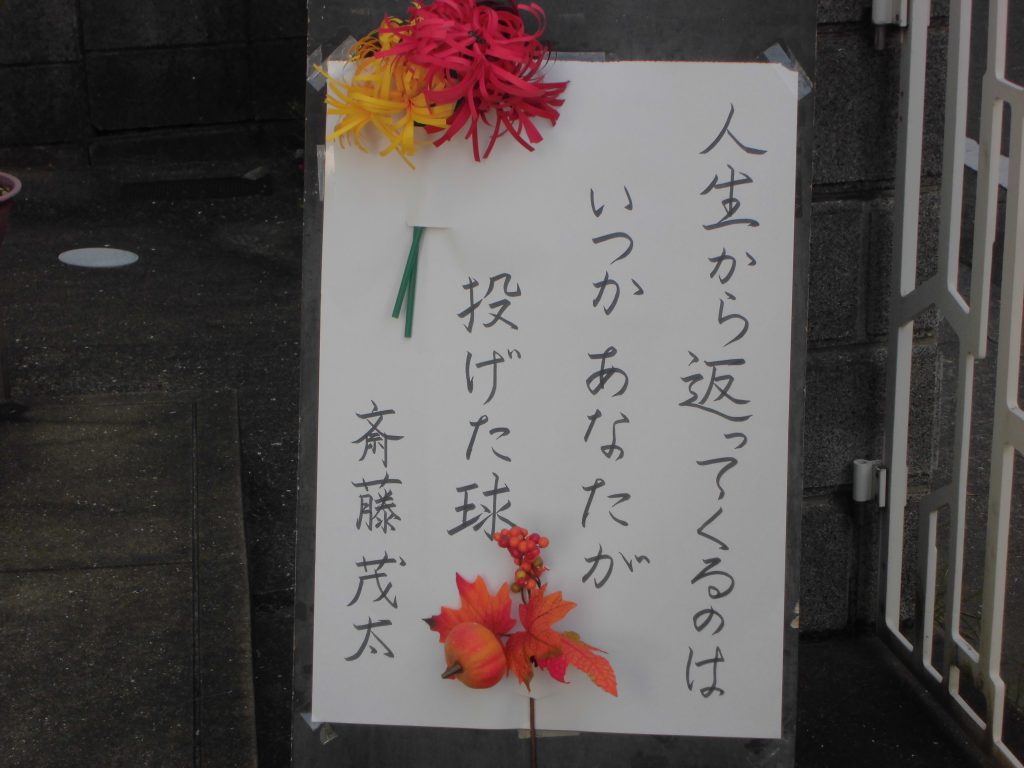 人生から返ってくるのは
いつかあなたが
投げた球
斎藤茂太